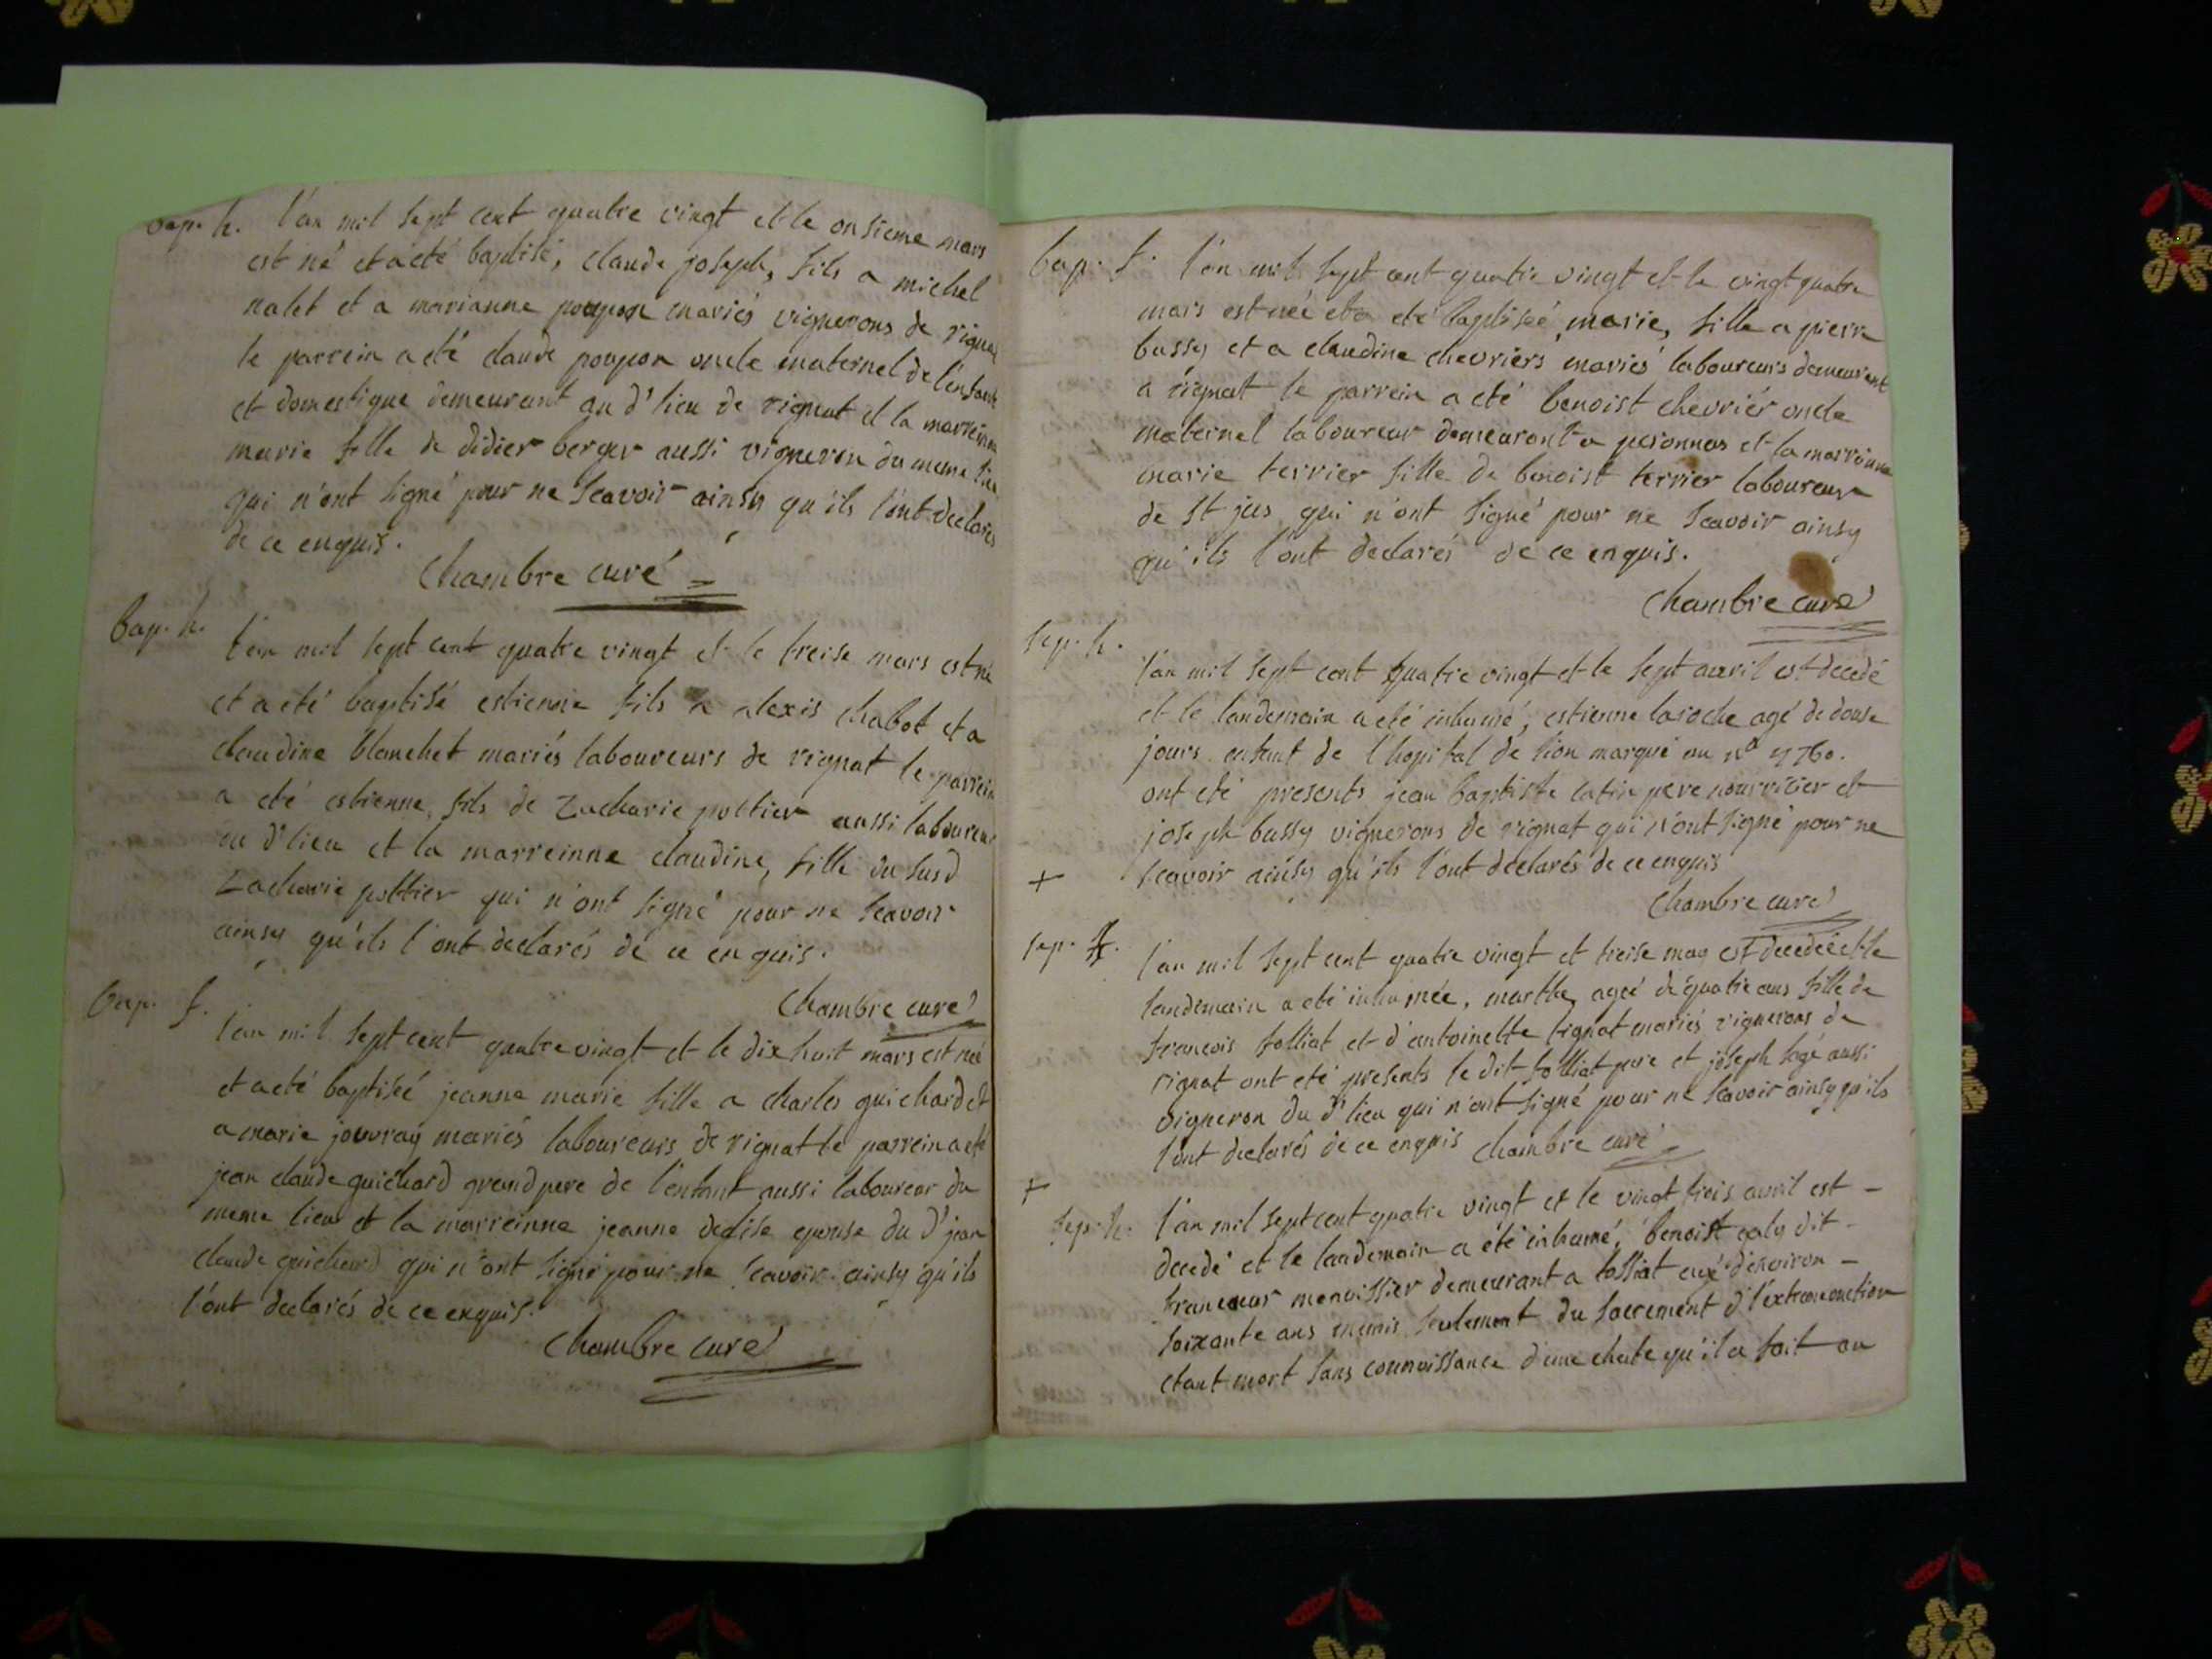 bap. h. l'an mil sept cent quatre vingt et le onsieme mars
est né et a eté baptisé, claude joseph, fils a michel
nalet et a marianne poupon mariés vignerons de rignat
le parrein a eté claude poupon oncle maternel de l'enfant
et domestique demeurant au d' lieu de rignat et la marreinne
marie fille de didier berger aussi vigneron du meme lieu
qui n'ont signé pour ne scavoir ainsy qu'ils l'ont declarés
de ce enquis.
Chambre curé
bap. h.
l'an mil sept cent quatre vingt et le treise mars est né
et a eté baptisé estienne fils a alexis chabot et a
claudine blanchet mariés laboureurs de rignat le parrein
a eté estienne, fils de Zacharie pottier aussi laboureur
au d' lieu et la marreinne claudine, fille du susd
Zacharie pottier qui n'ont signé pour ne scavoir
ainsy qu'ils l'ont declarés de ce enquis.
Chambre curé
bap. f.
l'an mil sept cent quatre vingt et le dix huit mars est neé
et a eté baptiseé jeanne marie fille a charles guichard et
a marie jouvray mariés laboureurs de rignat le parrein a eté
jean claude guichard grand pere de l'enfant aussi laboureur du
meme lieu et la marreinne jeanne deglise epouse du d' jean
claude guichard qui n'ont signé pour ne scavoir ainsy qu'ils
l'ont declarés de ce enquis.
Chambre curé
bap. f. l'an mil sept cent quatre vingt et le vingt quatre
mars est neé et a eté baptiseé marie, fille a pierre
bussy et a claudine chevriers mariés laboureurs demeurent
a rignat le parrein a eté benoist chevriér oncle
maternel laboureur demeurant a peronnas et la marreinne
marie terrier fille de benoist terrier laboureur
de st jus qui n'ont signé pour ne scavoir ainsy
qu'ils l'ont declarés de ce enquis.
Chambre curé
sep. h.
l'an mil sept cent quatre vingt et le sept avril est decedé
et le landemain a eté inhumé, estienne laroche agé de douse
jours enfant de l'hopital de lion marqué au no 4760.
ont eté presents jean baptiste catin pere nourricier et
joseph bussy vignerons de rignat qui n'ont signé pour ne
+ scavoir ainsy qu'ils l'ont declarés de ce enquis
Chambre curé
sep. f.
l'an mil sept cent quatre vingt et treise may est decedeé et le
landemain a eté inhumée, marthe, ageé de quatre ans fille de
francois folliat et d'antoinette tignat mariés vignerons de
rignat ont eté presents le dit folliat pere et joseph sagé aussi
vigneron du d' lieu qui n'ont signé pour ne scavoir ainsy qu'ils
l'ont declarés de ce enquis Chambre curé
+
sep. h. l'an mil sept cent quatre vingt et le vingt trois avril est -
decedé et le landemain a été inhumé, benoist galy dit -
francoeur menuissier demeurant a tossiat agé d'environ -
soixante ans munis seulement du sacrement d'extreme onction
etant mort sans connoissance d'une chute qu'il a fait au